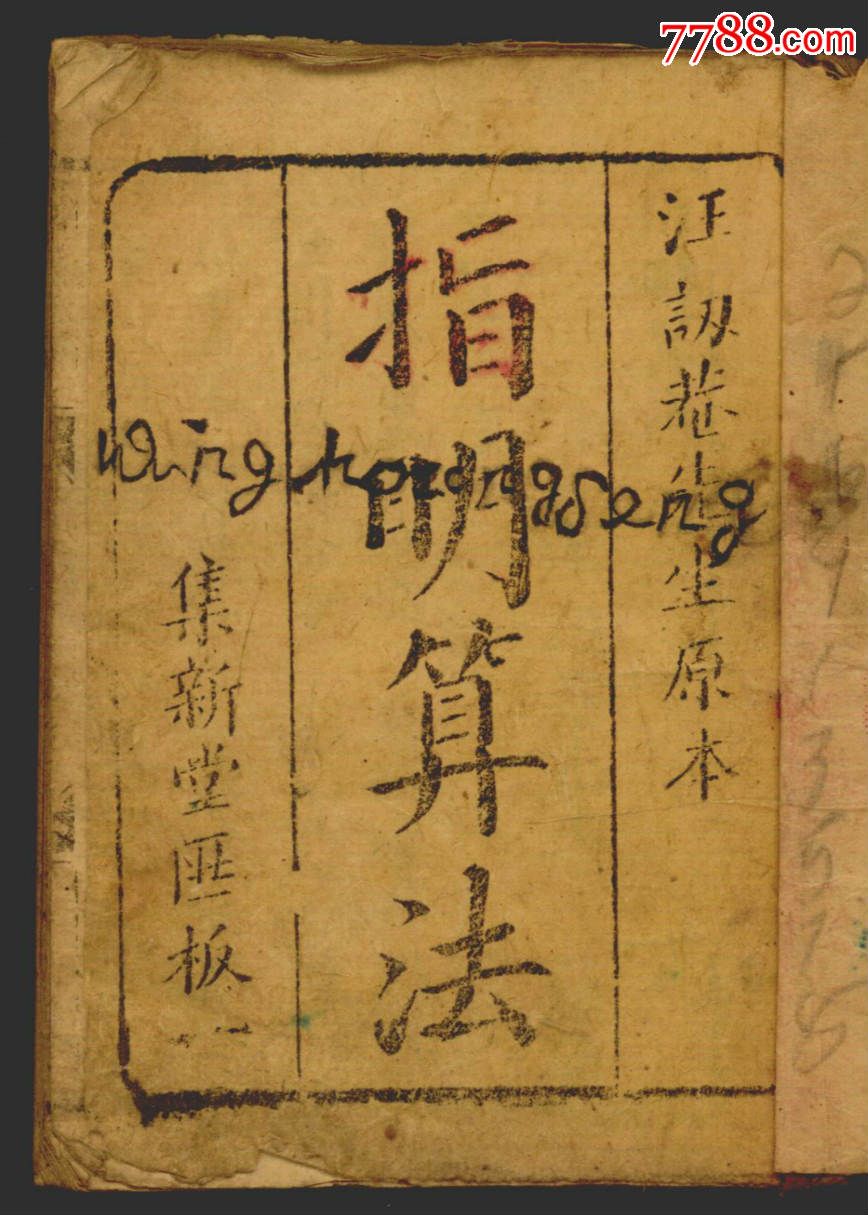 7788.com
汪訒菴先生原本
指明算法
集新堂匪板
seng